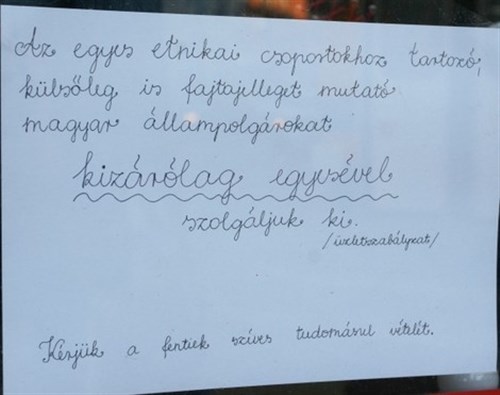 Az egyes etnikai csoportokhoz tartozó,
külsőleg is fajtajelleget mutató
magyar állampolgárokat
kizárólag egyesével
szolgáljuk ki.
/üzletszabályzat/
Kérjük a fentiek szíves tudomásul vételét.